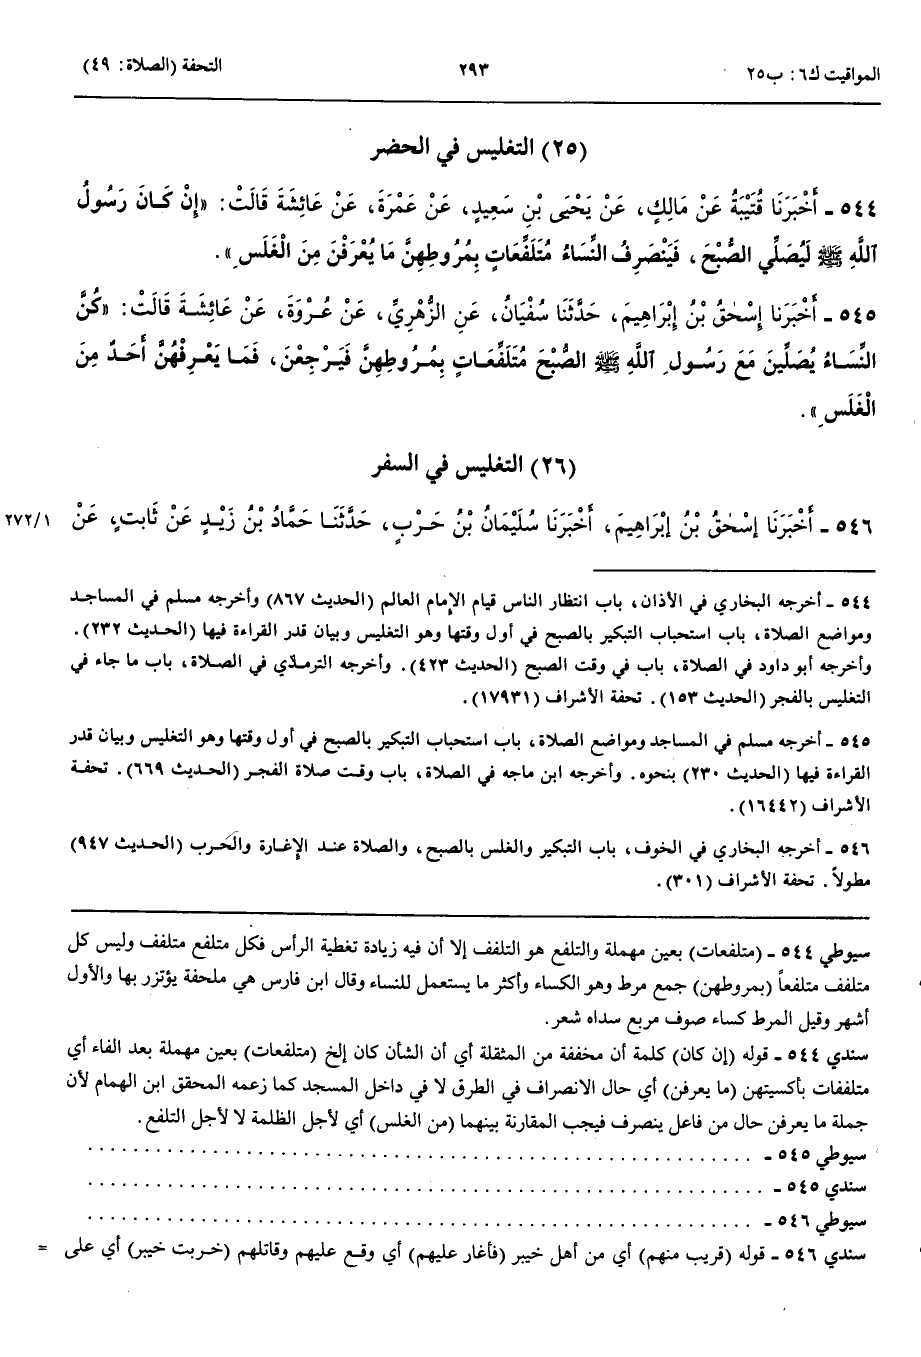 المواقيت ك٦: ب٢٥ ٢٩٣ التحفة (الصلاة: ٤٩)
(٢٥) التغليس في الحضر
٥٤٤ ـ أَخْبَرَنَا قُتَيْبَةُ عَنْ مَالِكٍ، عَنْ يَحْيَى بْنِ سَعِيدٍ، عَنْ عَمْرَةَ، عَنْ عَائِشَةَ قَالَتْ: «إِنْ كَانَ رَسُولُ
ٱللَّهِ ﷺ لَيُصَلِّي الصُّبْحَ، فَيَنْصَرِفُ النِّسَاءُ مُتَلَفِّعَاتٍ بِمُرُوطِهِنَّ مَا يُعْرَفْنَ مِنَ الْغَلَسِ».
٥٤٥ ـ أَخْبَرَنَا إِسْحٰقُ بْنُ إِبْرَاهِيمَ، حَدَّثَنَا سُفْيَانُ، عَنِ الزُّهْرِيِّ، عَنْ عُرْوَةَ، عَنْ عَائِشَةَ قَالَتْ: «كُنَّ
النِّسَاءُ يُصَلِّينَ مَعَ رَسُولِ ٱللَّهِ ﷺ الصُّبْحَ مُتَلَفِّعَاتٍ بِمُرُوطِهِنَّ فَيَرْجِعْنَ، فَمَا يَعْرِفُهُنَّ أَحَدٌ مِنَ
الْغَلَسِ».
(٢٦) التغليس في السفر
٥٤٦ ـ أَخْبَرَنَا إِسْحٰقُ بْنُ إِبْرَاهِيمَ، أَخْبَرَنَا سُلَيْمَانُ بْنُ حَرْبٍ، حَدَّثَنَا حَمَّادُ بْنُ زَيْدٍ عَنْ ثَابِتٍ، عَنْ ٢٧٢/١
٥٤٤ ـ أخرجه البخاري في الأذان، باب انتظار الناس قيام الإمام العالم (الحديث ٨٦٧) وأخرجه مسلم في المساجد
ومواضع الصلاة، باب استحباب التبكير بالصبح في أول وقتها وهو التغليس وبيان قدر القراءة فيها (الحديث ٢٣٢).
وأخرجه أبو داود في الصلاة، باب في وقت الصبح (الحديث ٤٢٣). وأخرجه الترمذي في الصلاة، باب ما جاء في
التغليس بالفجر (الحديث ١٥٣). تحفة الأشراف (١٧٩٣١).
٥٤٥ ـ أخرجه مسلم في المساجد ومواضع الصلاة، باب استحباب التبكير بالصبح في أول وقتها وهو التغليس وبيان قدر
القراءة فيها (الحديث ٢٣٠) بنحوه. وأخرجه ابن ماجه في الصلاة، باب وقت صلاة الفجر (الحديث ٦٦٩). تحفة
الأشراف (١٦٤٤٢).
٥٤٦ ـ أخرجه البخاري في الخوف، باب التبكير والغلس بالصبح، والصلاة عند الإغارة والحرب (الحديث ٩٤٧)
مطولاً. تحفة الأشراف (٣٠١).
سيوطي ٥٤٤ ـ (متلفعات) بعين مهملة والتلفع هو التلفف إلا أن فيه زيادة تغطية الرأس فكل متلفع متلفف وليس كل
متلفف متلفعاً (بمروطهن) جمع مرط وهو الكساء وأكثر ما يستعمل للنساء وقال ابن فارس هي ملحفة يؤتزر بها والأول
أشهر وقيل المرط كساء صوف مربع سداه شعر.
سندي ٥٤٤ ـ قوله (إن كان) كلمة أن مخففة من المثقلة أي أن الشأن كان إلخ (متلفعات) بعين مهملة بعد الفاء أي
متلففات بأكسيتهن (ما يعرفن) أي حال الانصراف في الطرق لا في داخل المسجد كما زعمه المحقق ابن الهمام لأن
جملة ما يعرفن حال من فاعل ينصرف فيجب المقارنة بينهما (من الغلس) أي لأجل الظلمة لا لأجل التلفع.
سيوطي ٥٤٥ ـ . . . . . . . . . . . . . . . . . . . . . . . . . . . . . .
سندي ٥٤٥ ـ . . . . . . . . . . . . . . . . . . . . . . . . . . . . . .
سيوطي ٥٤٦ ـ . . . . . . . . . . . . . . . . . . . . . . . . . . . . . .
سندي ٥٤٦ ـ قوله (قريب منهم) أي من أهل خيبر (فأغار عليهم) أي وقع عليهم وقاتلهم (خربت خيبر) أي على =